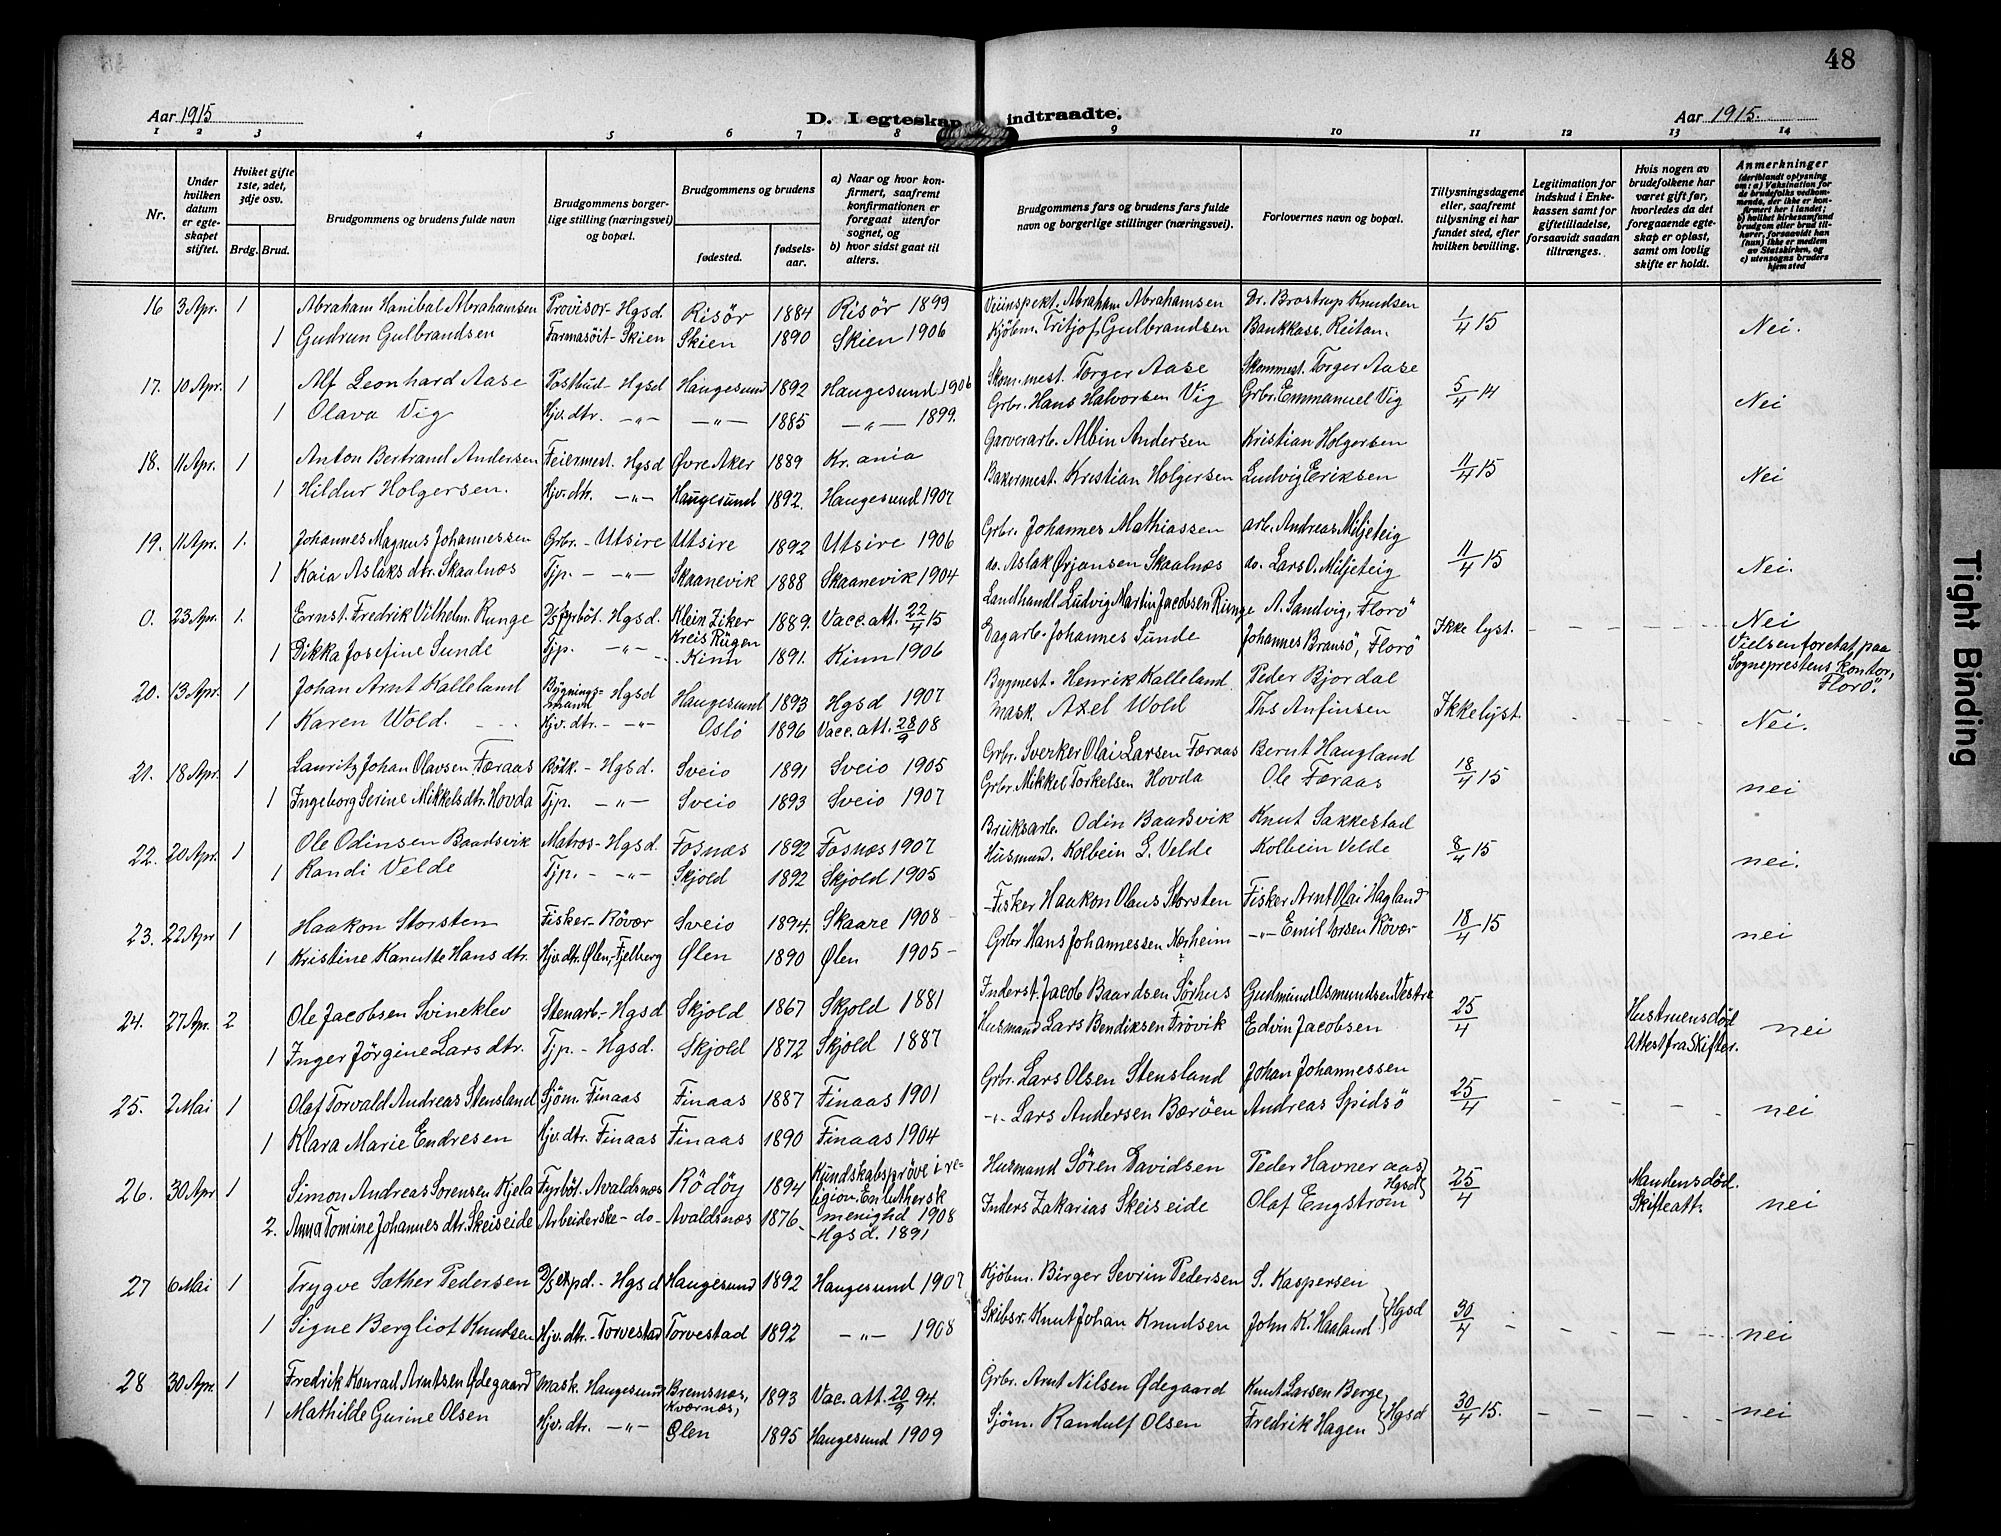 48
Aar 1915
D. Egteskap indtraadte.
Aar 1915.
1 2 3 4 5 6 7 8 9 10 11 12 13 14
Nr.
Under hvilken datum er egteskapet stiftet.
Hviket gifte 1ste, 2det, 3dje osv.
Brdg. Brud.
Brudgommens og brudens fulde navn
Brudgommens borgerlige stilling (næringsvei) og bopæl.
Brudgommens og brudens
fødested.
fødselsaar.
a) Naar og hvor konfirmert, saafremt konfirmationen er foregaat utenfor sognet, og
b) hvor sidst gaat til alters.
Brudgommens fars og brudens fars fulde navn og borgerlige stillinger (næringsvei).
Forlovernes navn og bopæl.
Tillysningsdagene eller, saafremt tillysning ei har fundet sted, efter hvilken bevilling.
Legitimation for indskud i Enkekassen samt for giftetilladelse, forsaavidt saadan tiltrænges.
Hvis nogen av brudefolkene har været gift før, hvorledes da det foregaaende egteskap er opløst, samt om lovlig skifte er holdt.
Anmerkninger (deriblandt oplysning om: a) Vaksination for de brudefolks vedkommende, der ikke er konfirmert her i landet; b) hvilket kirkesamfund brudgom eller brud tilhører, forsaavidt han (hun) ikke er medlem av Statskirken, og c) utensogns bruders hjemsted
16 3 Apr. 1 Abraham Hanibal Abrahamsen Provisor - Hgsd. Risör 1884 Risör 1899 Veiinspekt. Abraham Abrahamsen Dr. Brostrup Knudsen 1/4 15 Nei.
1 Gudrun Gulbrandsen Farmasöit - Skien Skien 1890 Skien 1906 Kjöbm. Fritjof Gulbrandsen Bankkass. Reitan.
17. 10 Apr. 1 Alf Leonhard Aase Postbud - Hgsd Haugesund 1892 Haugesund 1906 Skom.mest. Torger Aase Skommest. Torger Aase 5/4 14 Nei
1 Olava Vig Hjv. dtr. -"- -"- 1885 -"- 1899. Grbr. Hans Halvorsen Vig Grbr. Emmanuel Vig
18. 11 Apr. 1 Anton Bertrand Andersen Feiermest. Hgsd Øvre Aker 1889 Kr.ania Garverarb. Albin Andersen Kristian Holgersen 11/4 15 Nei
1 Hildur Holgersen. Hjv. dtr. -"- Haugesund 1892. Haugesund 1907 Bakermest. Kristian Holgersen Ludvig Eriksen
19. 11 Apr. 1. Johannes Magnus Johannessen Grbr. - Utsire Utsire 1892 Utsire 1906 Grbr. Johannes Mathiassen arb. Andreas Miljeteig 11/4 15 Nei.
1 Kaia Aslaksdtr. Skaalnæs Tjp. - -"- Skaanevik 1888 Skaanevik 1904 do. Aslak Ørjansen Skaalnæs do. Lars O. Miljeteig
0. 23 Apr. 1. Ernst. Fredrik Vilhelm. Runge D/S fyrböt. Hgsd. Klein Ziker Kreis Rügen 1889. Vacc. att. 22/4 15 Landhandl. Ludvig Martin Jacobsen Runge A. Sandvig, Florö Ikke lyst. Nei
1 Rikka Josefine Sunde Tjp. -"- Kinn 1891. Kinn 1906 Dagarb. Johannes Sunde Johannes Bransö, Florö Vielsen foretat paa Sogneprestens kontor, Florö.
20. 13 Apr. 1 Johan Arnt Kalleland Bygningsmand Hgsd Haugesund 1893 Hgsd 1907 Bygmest. Henrik Kalleland Peder Bjordal Ikke lyst. Nei.
1 Karen Wold. Hjv. dtr. -"- Oslo 1896 Vacc. att. 28/9 08 Mask. Axel Wold Ths Anfinsen
21. 18 Apr. 1 Lauritz Johan Olavsen Færaas Bökk. - Hgsd. Sveio 1891 Sveio 1905 Grbr. Sverker Olai Larsen Færaas Bernt Haugland 18/4 15 nei
1 Ingeborg Serine Mikkelsdtr. Hovda Tjp. -"- Sveio 1893 Sveio 1907 Grbr. Mikkel Torkelsen Hovda Ole Færaas
22. 20 Apr. 1 Ole Odinsen Baadsvik Matros - Hgsd. Fosnæs 1892 Fosnæs 1907 Bruksarb. Odin Baadsvik Knut Sakkestad 8/4 15 nei.
1 Randi Velde Tjp. - -"- Skjold 1892 Skjold 1905 Husmand. Kolbein L. Velde Kolbein Velde
23. 22 Apr 1 Haakon Storsten Fisker - Rövær Sveio 1894. Skaare 1908 - Fisker Haakon Olaus Storsten Fisker Arnt Olai Hagland 18/4 15 nei
1 Kristine Kanutte Hansdtr. Hjv. dtr. Ølen, Fjelberg Ølen 1890 Ølen 1905 - Grbr Hans Johannessen Nærheim -"- Emil Torsen Rövær
24. 27 Apr. 2 Ole Jacobsen Svineklev Stenarb. - Hgsd Skjold 1867 Skjold 1881 Inderst. Jacob Baardsen Sørhus Gudmund Osmundsen Vestre 25/4 Hustruens död Attest fra Skifter. nei
1 Inger Jörgine Larsdtr. Tjp. - Hgsd. Skjold 1872 Skjold 1887 Husmand Lars Bendiksen Frövik Edvin Jacobsen
25. 2 Mai 1 Olaf Torvald Andreas Stensland Sjöm. Finaas Finaas 1887 Finaas 1901 Grbr. Lars Olsen Stensland Johan Johannessen 25/4 nei
1 Klara Marie Endresen Hjv. dtr. Finaas Finaas 1890 Finaas 1904 -"- Lars Andersen Bærøen Andreas Spidsö
26. 30 Apr 1 Simon Andreas Sørensen Kjela Fyrböt. Avaldsnæs Rödöy 1894 Kundskabspröve i religion. En luthersk menighd 1908 Husmand Sören Davidsen Peder Havneraas Hgsd 25/4 Mandens död. Skifteatt. nei
2. Anna Tomine Johannesdtr. Skeiseide Arbeiderske - do - Avaldsnæs 1876 - Hgsd. 1891 Inders Zakarias Skeiseide Olaf Engström
27 6 Mai 1 Trygve Sæther Pedersen D/S expd. - Hgsd Haugesund 1892 Haugesund 1907 Kjöbm. Birger Sevrin Pedersen S. Kaspersen Hgsd 30/4 nei
1 Signe Bergliot Knudsen Hjv. dtr. - Torvestad Torvestad 1892 -"- 1908 Skibsr. Knut Johan Knudsen John K. Haaland
28 30 Apr. 1 Fredrik Konrad Arntsen Ødegaard Mask. Haugesund Bremsnæs, Kværnæs, 1893 Vac. att. 20/9 94. Grbr. Arnt Nilsen Ødegaard Knut Larsen Berge Hgsd 30/4 15. nei
1 Mathilde Gurine Olsen Hjv. dtr. -"- Ølen 1895 Haugesund 1909 Sjöm. Randulf Olsen Fredrik Hagen
Tight Binding